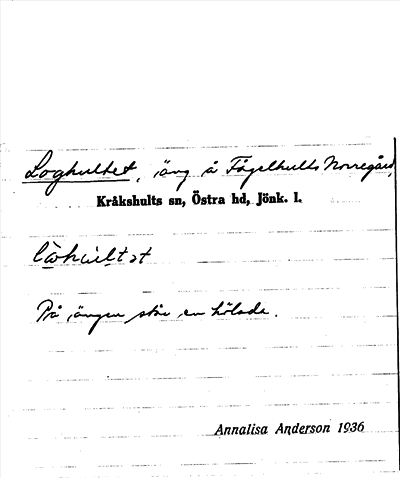 Loghultet, äng å Fågelhults Norregård,
Kråkshults sn, Östra hd, Jönk. l.
På ängen står en hölada.
Annalisa Anderson 1936